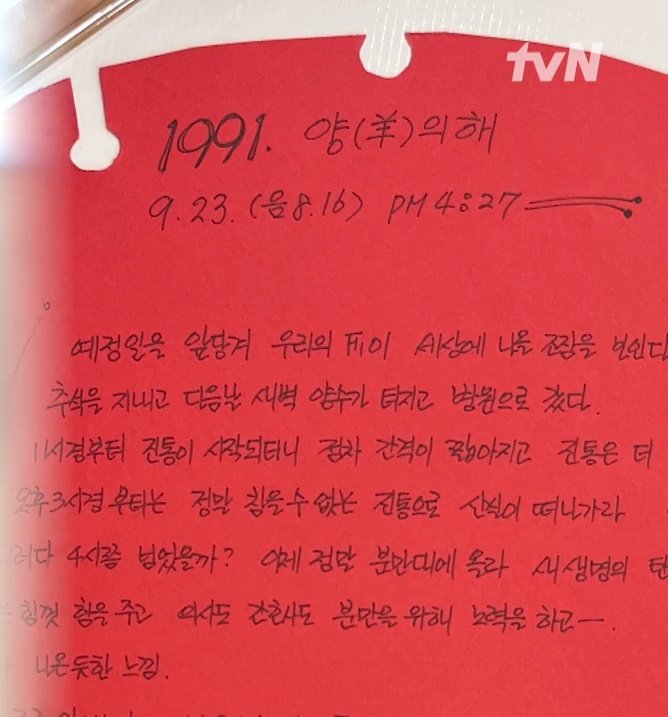 tvN
1991. 양(羊)의해
9.23.(음8.16) PM 4:27
예정일을 앞당겨 우리의 TI이 세상에 나올 조짐을 보인다
추석을 지내고 다음날 새벽 양수가 터지고 병원으로 갔다.
11시경부터 진통이 시작되더니 점차 간격이 짧아지고 진통은 더
오후3시경부터는 정말 참을수 없는 진통으로 신음이 떠나가라
그러다 4시쯤 넘었을까? 이제 정말 분만대에 올라 새생명의 탄
힘껏 힘을 주고 의사도 간호사도 분만을 위해 노력을 하고一.
나온듯한 느낌.